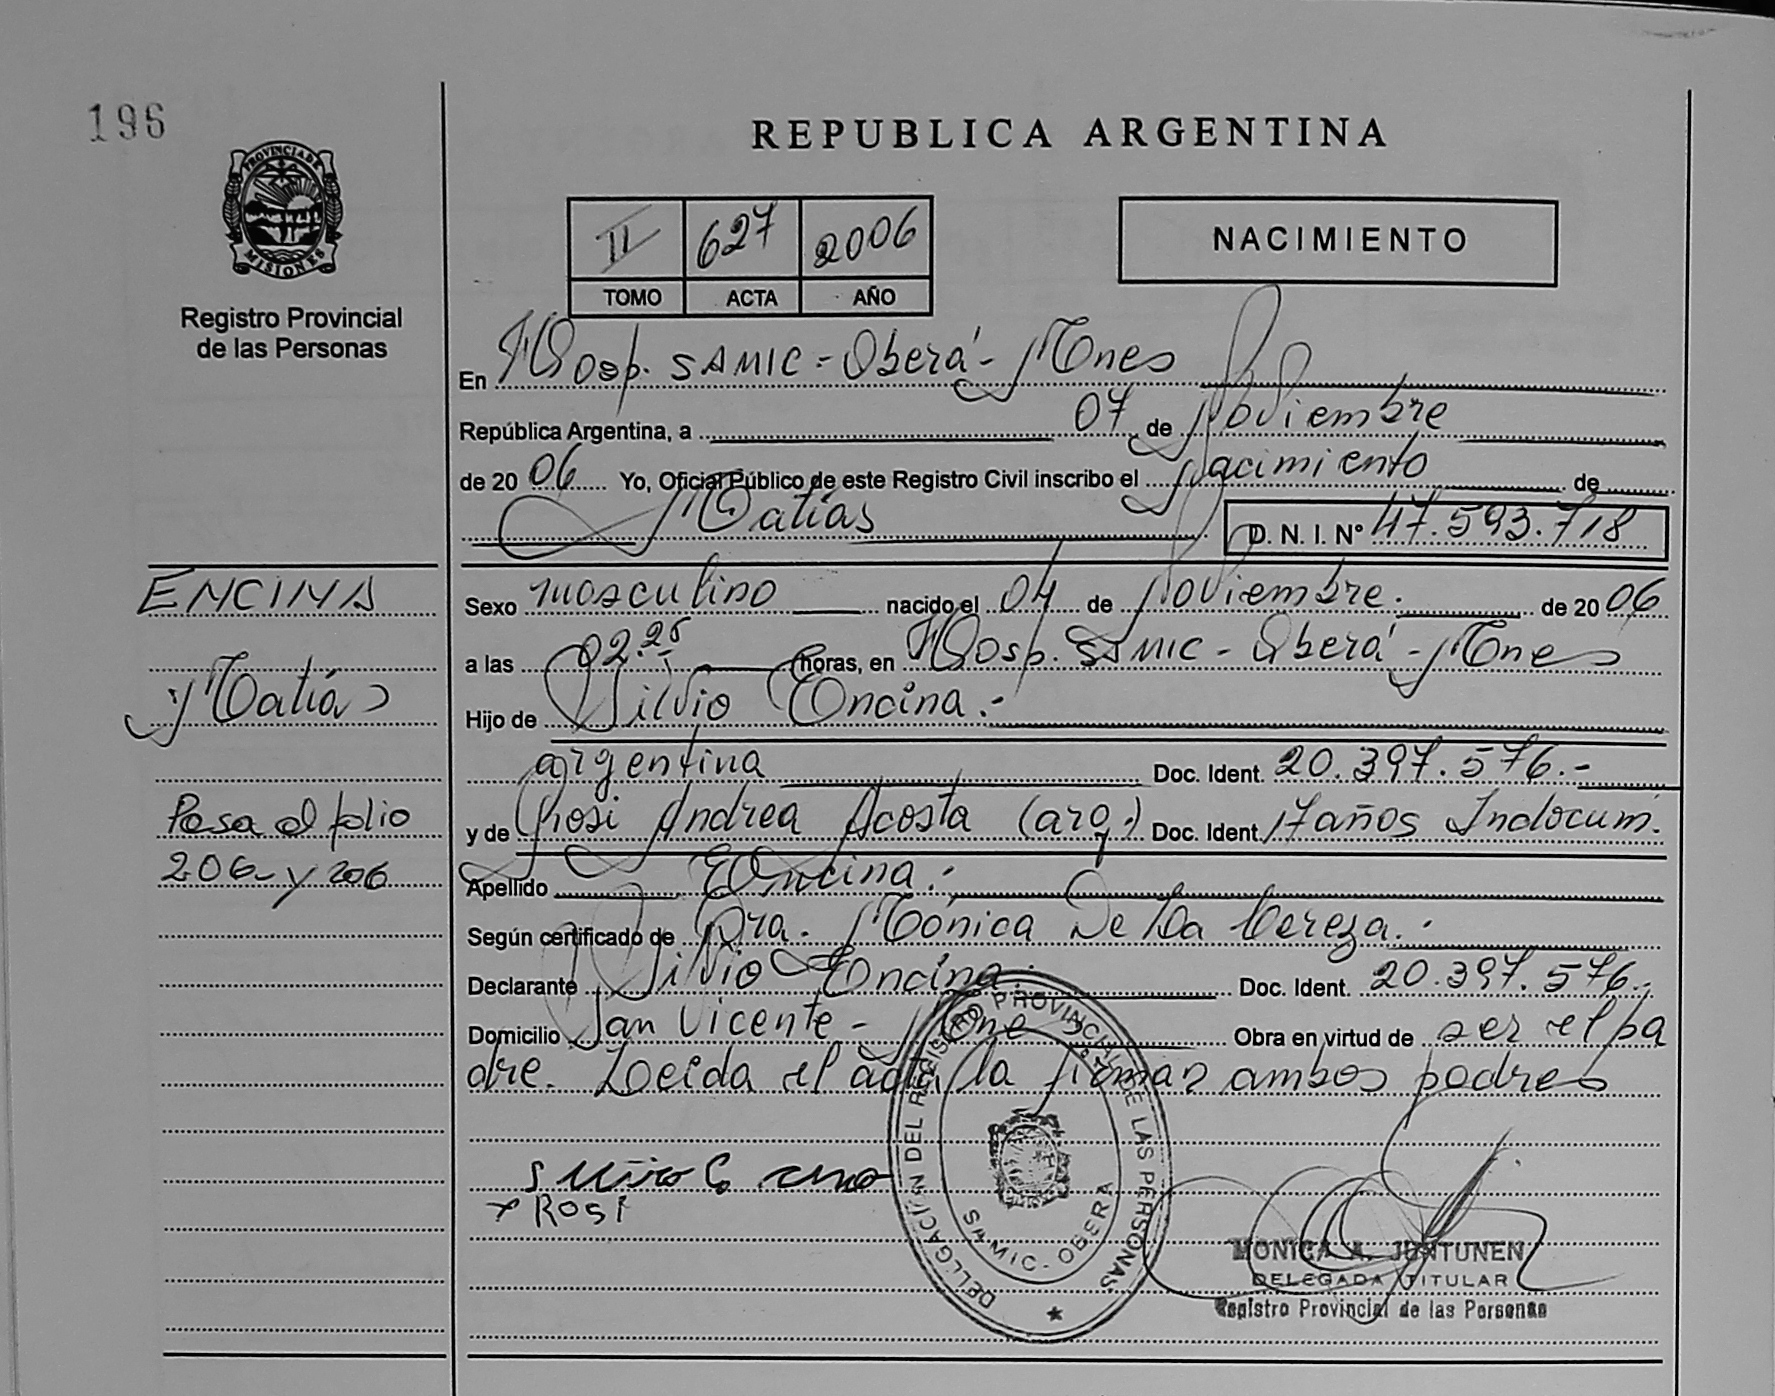 196
REPUBLICA ARGENTINA
PROVINCIA DE
MISIONES
Registro Provincial
de las Personas
II 627 2006
TOMO ACTA AÑO
NACIMIENTO
En Hosp. SAMIC - Oberá - Mnes
República Argentina, a 07 de Noviembre
de 20 06 Yo, Oficial Público de este Registro Civil inscribo el Nacimiento de
Matías D. N. I. Nº 47.593.718
ENCINA
Matías
Pasa al folio
206 y 206
Sexo masculino nacido el 04 de Noviembre. de 20 06
a las 02.25 horas, en Hosp. SAMIC - Oberá - Mnes
Hijo de Silvio Encina.-
argentina Doc. Ident. 20.397.576.-
y de Rosi Andrea Acosta (arg.) Doc. Ident. 17 años Indocum.
Apellido Encina.-
Según certificado de Dra. Mónica De La
Declarante Silvio Encina. Doc. Ident. 20.397.576.-
Domicilio San Vicente - Mnes Obra en virtud de ser el pa
dre. Leida el acta la firman ambos padres
ROSI
DELEGACIÓN DEL REGISTRO PROVINCIAL DE LAS PERSONAS
SAMIC - OBERA
MONICA A. JUNTUNEN
DELEGADA TITULAR
Registro Provincial de las Personas